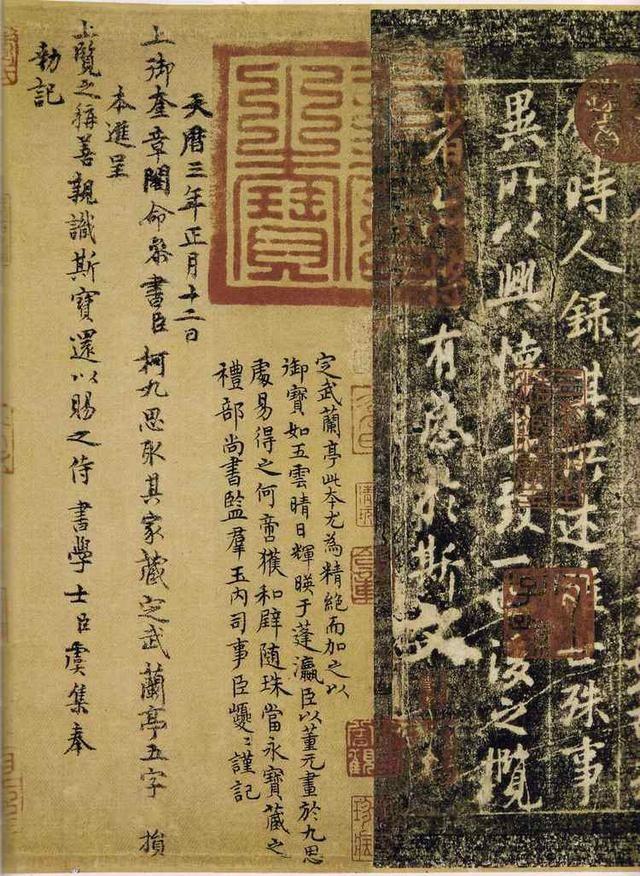 時人錄其所述雖世殊事
異所以興懷其致一也後之攬
者亦將有感於斯文
天曆之寶
定武蘭亭此本尤為精絕而加之以
御寶如五雲晴日輝暎于蓬瀛臣以董元畫於九思
處易得之何啻獲和璧隨珠當永寶藏之
禮部尚書監羣玉內司事臣巙巙謹記
天曆三年正月十二日
上御奎章閣命叅書臣柯九思取其家藏定武蘭亭五字損
本進呈
上覽之稱善親識斯寶還以賜之侍書學士臣虞集奉
勑記